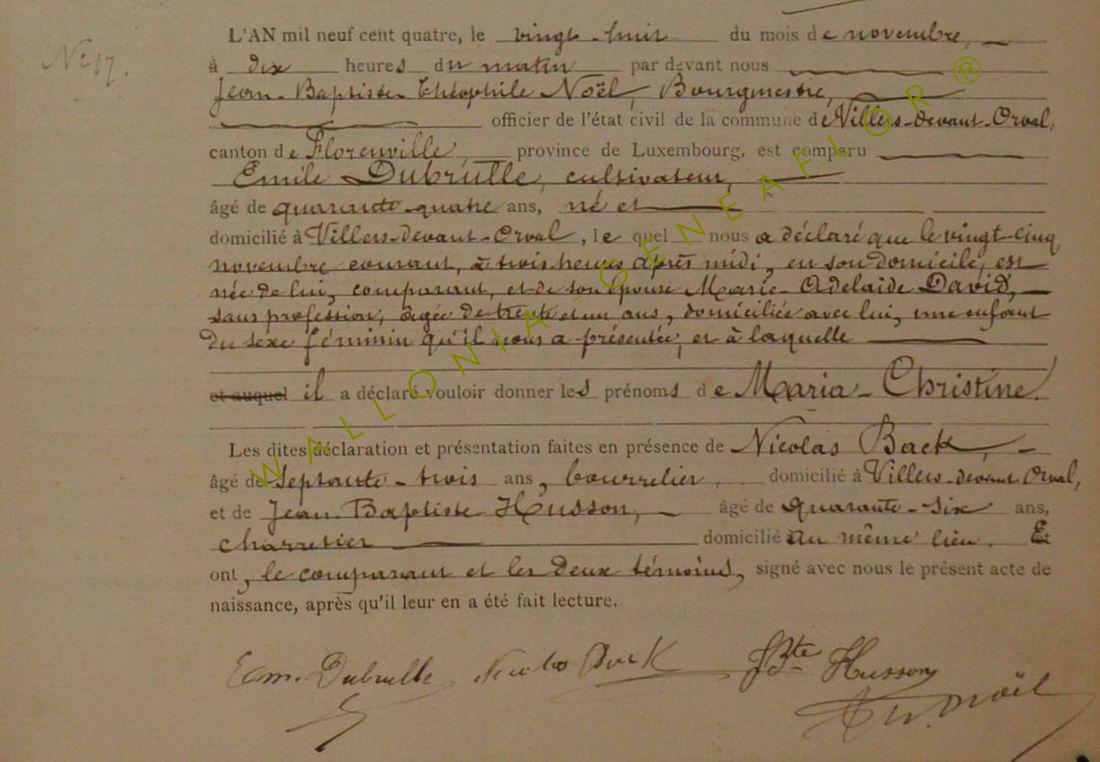 N° 17.
L'AN mil neuf cent quatre, le vingt-huit du mois de novembre,
à dix heures du matin par devant nous
Jean-Baptiste-Théophile Noël, Bourgmestre,
officier de l'état civil de la commune de Villers-devant-Orval,
canton de Florenville, province de Luxembourg, est comparu
Emile Dubrulle, cultivateur,
âgé de quarante-quatre ans, né et
domicilié à Villers-devant-Orval, lequel nous a déclaré que le vingt-cinq
novembre courant, à trois heures après midi, en son domicile, est
née de lui, comparant, et de son épouse Marie-Adelaïde David,
sans profession, âgée de trente et un ans, domiciliée avec lui, une enfant
du sexe féminin qu'il nous a présentée, et à laquelle
et auquel il a déclaré vouloir donner les prénoms de Maria-Christine.
Les dites déclaration et présentation faites en présence de Nicolas Back,
âgé de septante-trois ans, bourrelier, domicilié à Villers-devant Orval,
et de Jean-Baptiste Husson, âgé de quarante-six ans,
charretier domicilié au même lieu. Et
ont, le comparant et les deux témoins, signé avec nous le présent acte de
naissance, après qu'il leur en a été fait lecture.
Em. Dubrulle Nicolas Back JBte Husson
Th. Noël
WALLONIA-GENEAFLOR®